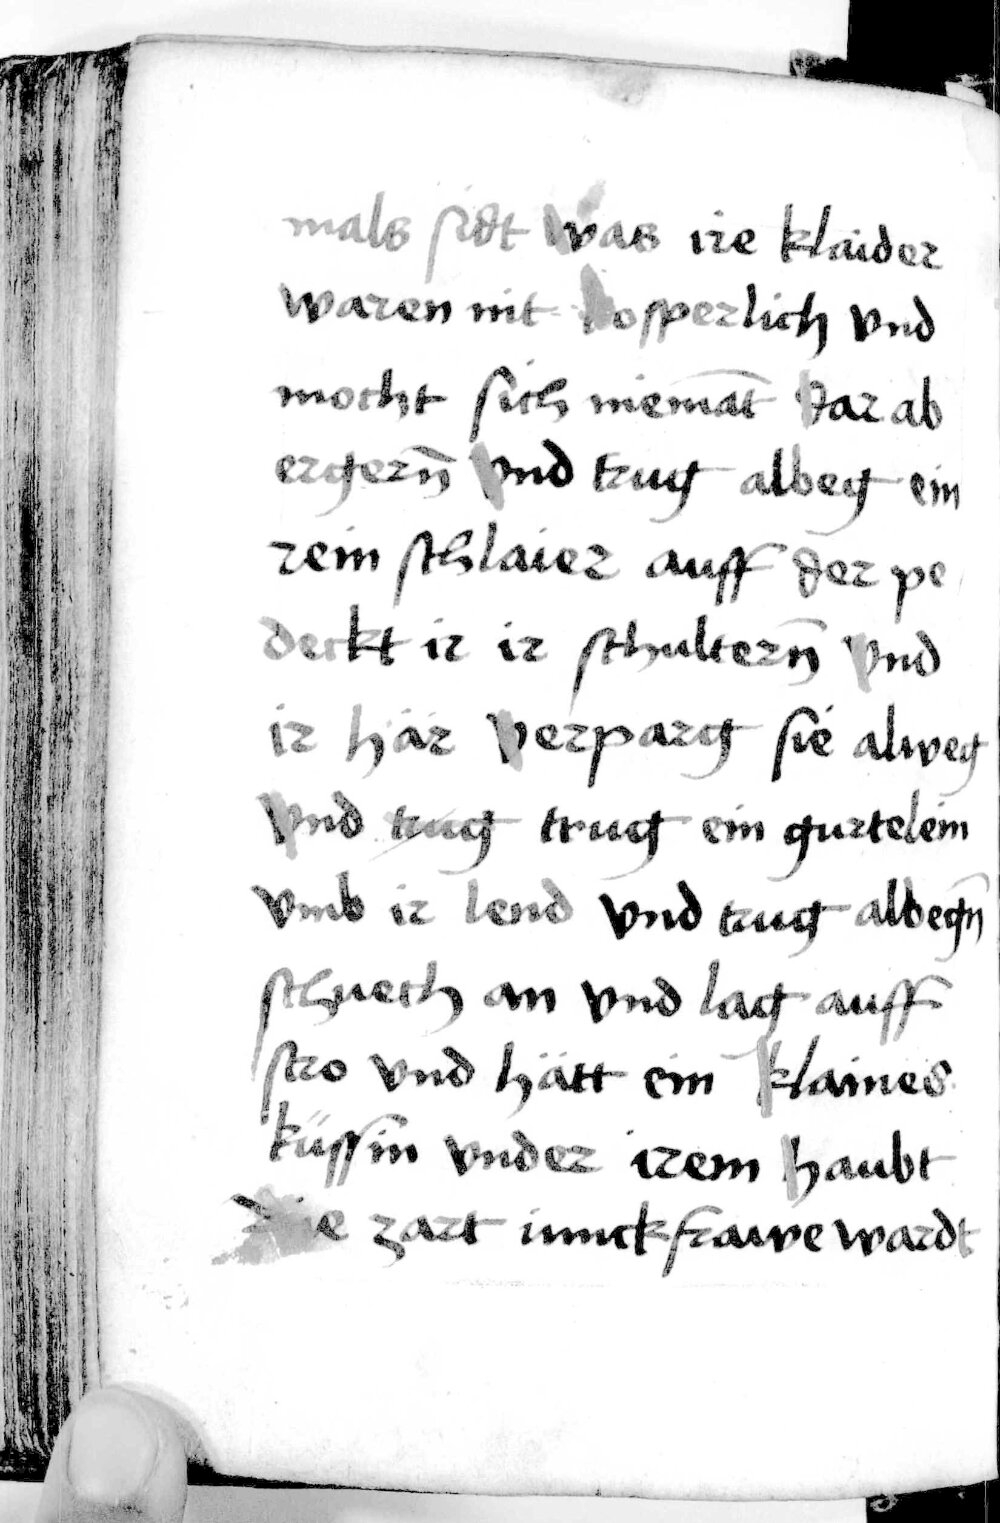 mals sicht was ire klaider
waren nit kosperlich vnd
mocht sich niemāt dar ab
ergern̄ vnd trug albeg ein
rein schlaier auff der pe
deckt ir ir schultern̄ vnd
ir här verparg sie alweg
vnd trug trug ein gurtelein
vmb ir lend vnd trug albegn̄
schuech an vnd lag auff
stro vnd hätt ein klaines
küssin̄ vnder irem haubt
Die zart iunckfrawe wardt